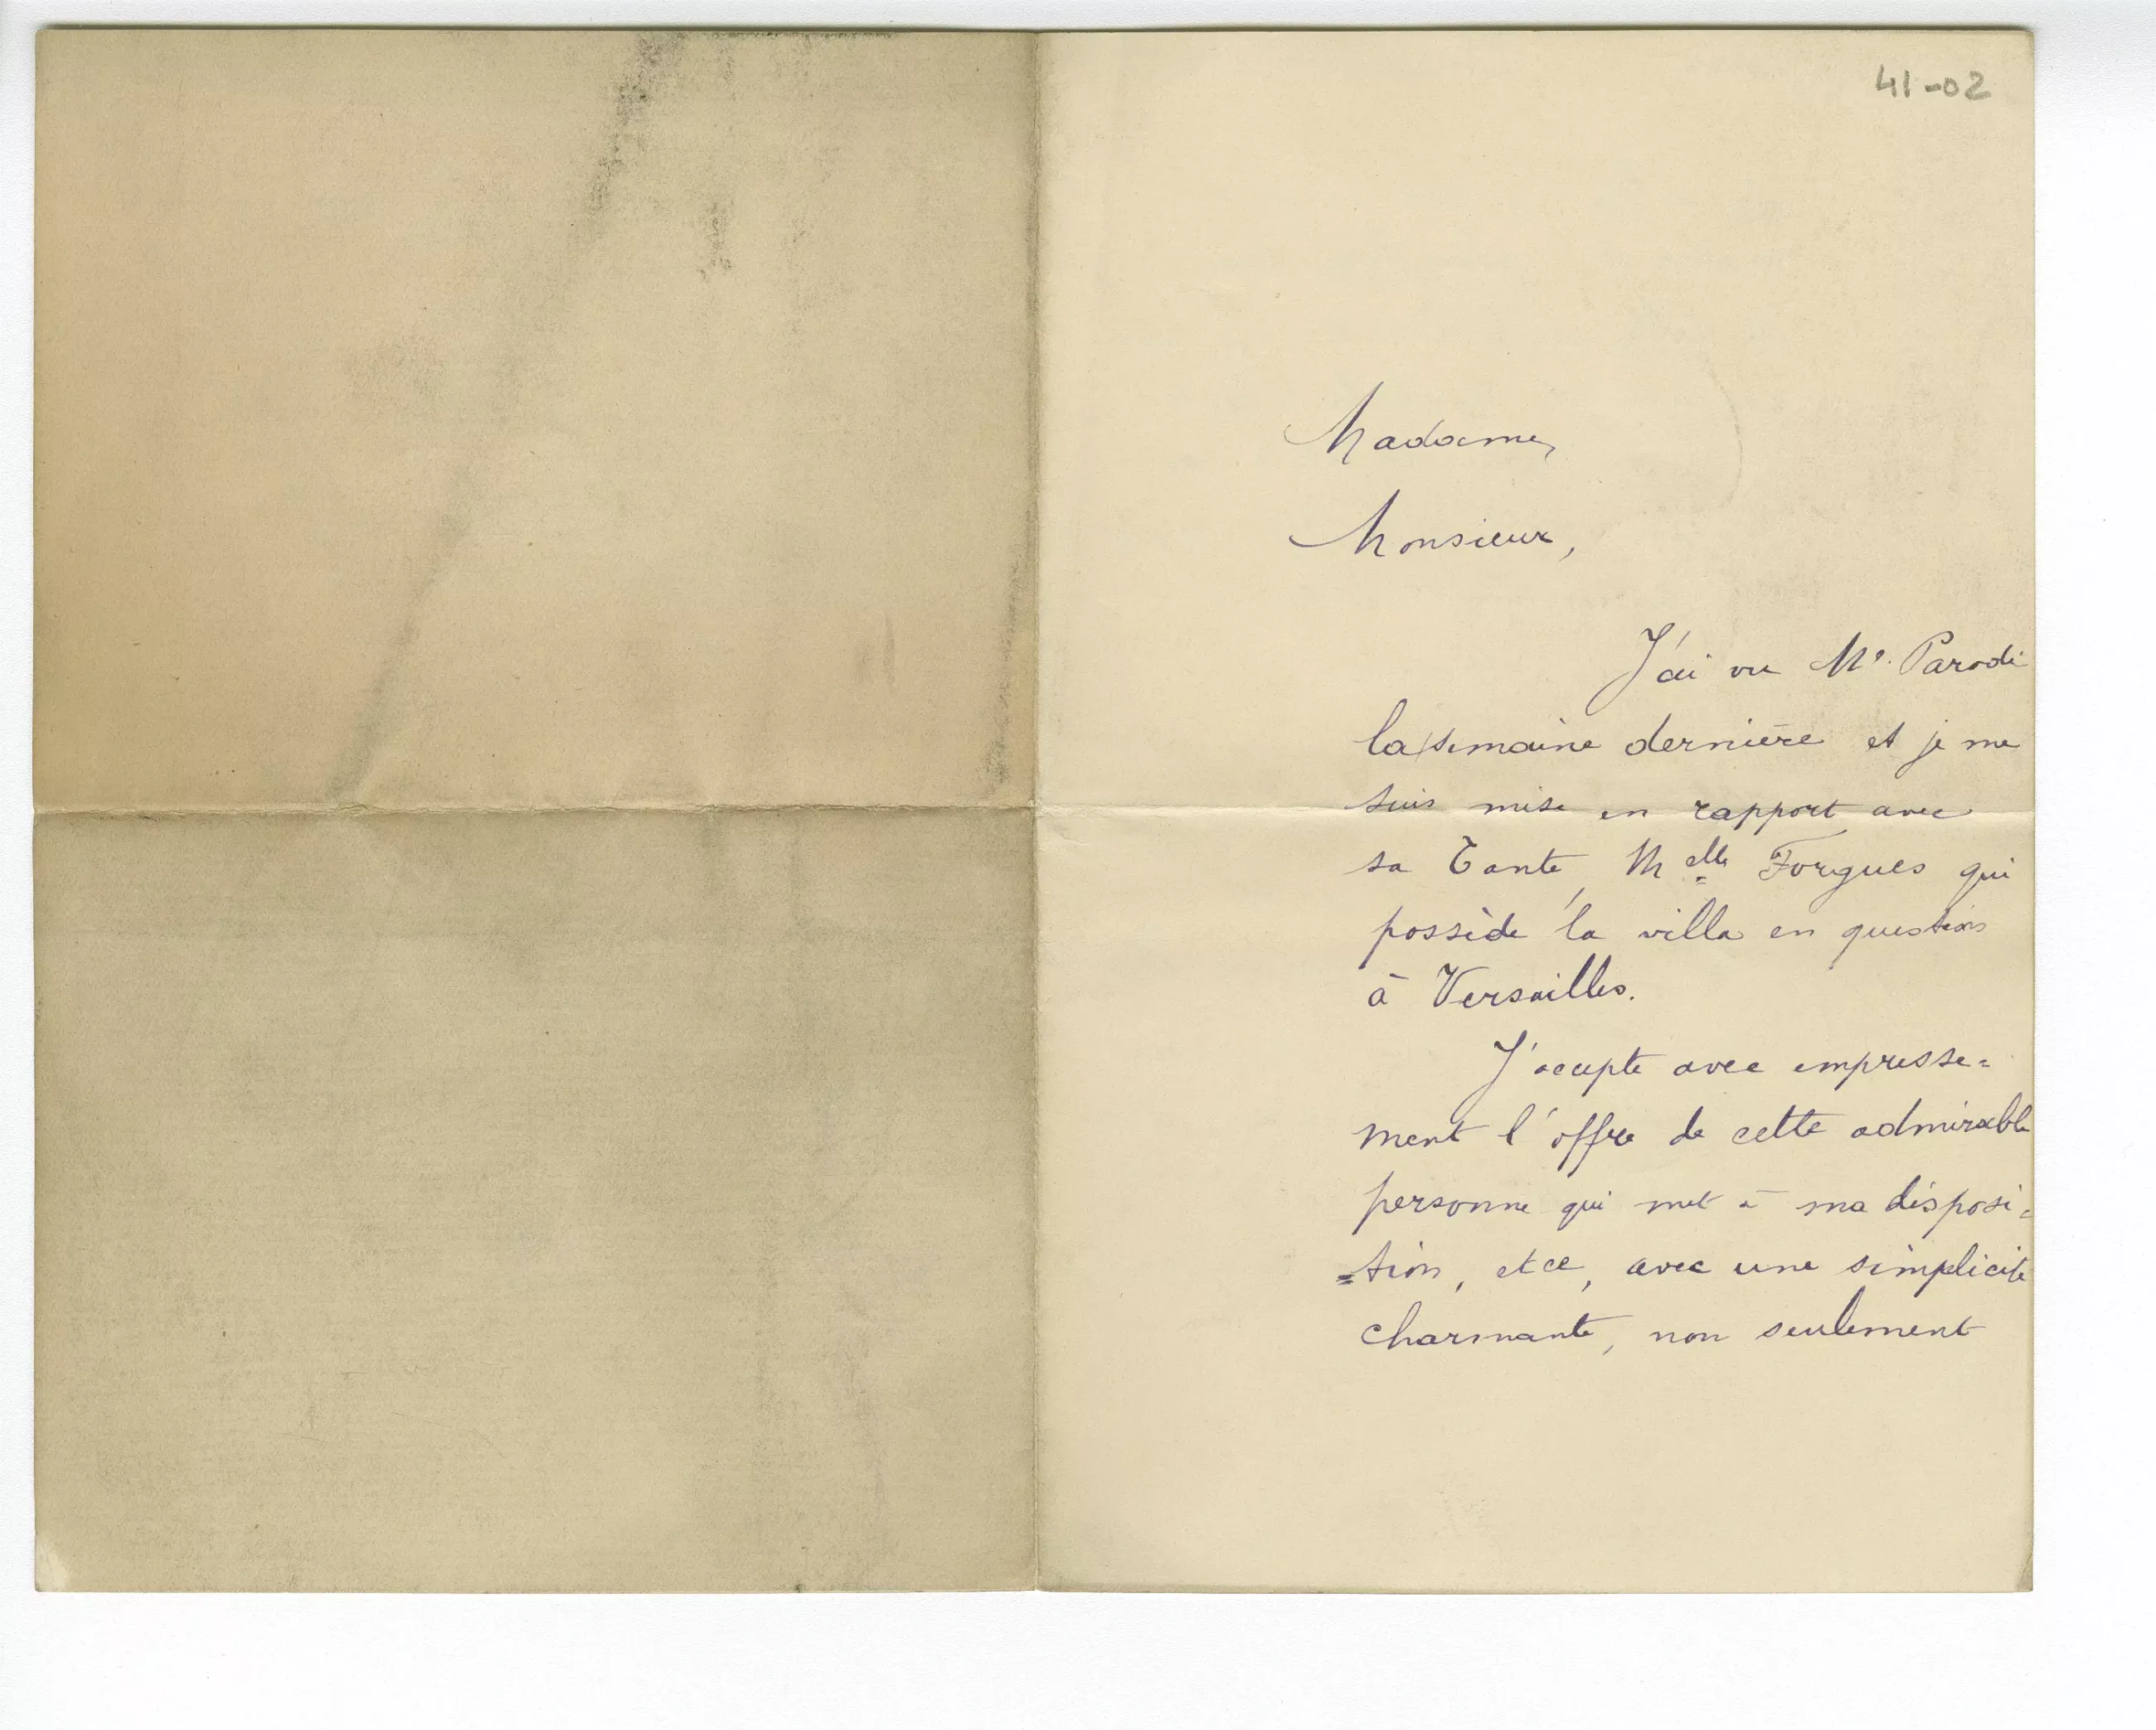 41-02
Madame,
Monsieur,
J'ai vu Mr. Parodi
la semaine dernière et je me
suis mise en rapport avec
sa Tante, Melle Forgues qui
possède la villa en question
à Versailles.
J'accepte avec empresse=
ment l'offre de cette admirable
personne qui met à ma disposi=
=tion, et ce, avec une simplicité
charmante, non seulement